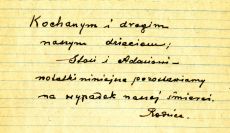 Kochanym i drogim
naszym dzieciom;
Stasi i Adasiowi -
notatki niniejsze pozostawiamy
na wypadek naszej śmierci.
Rodzice.